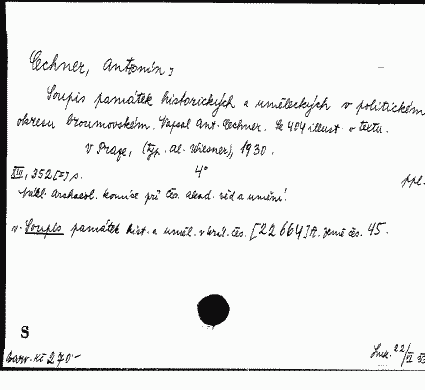 Cechner, Antonín,
Soupis památek historických a uměleckých v politickém
okresu broumovském. Napsal Ant. Cechner. Se 404 illust. v textu.
v Praze, (typ. Al. Wiesner), 1930.
XIII, 352 [I] s. 4° ppl.
Nákl. Archaeol. komise při čes. akad. věd a umění.
v. Soupis památek hist. a uměl. v král. čes. [22664] A. země čes. 45.
S
barv. Kč 270-
22/VI